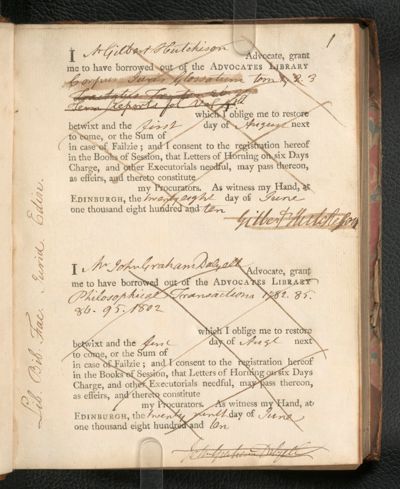 1
I Mr Gilbert Hutchison Advocate, grant
me to have borrowed out of the ADVOCATES LIBRARY
Corpus Juris Glossatum tom 1, 2. 3
Term Reports fol
which I oblige me to restore
betwixt and the first day of August next
to come, or the Sum of
in case of Failzie; and I consent to the registration hereof
in the Books of Session, that Letters of Horning on six Days
Charge, and other Executorials needful, may pass thereon,
as effeirs, and thereto constitute
my Procurators. As witness my Hand, at
EDINBURGH, the twenty eight day of June
one thousand eight hundred and ten
Gilbert Hutchison
I Mr John Graham Dalyell Advocate, grant
me to have borrowed out of the ADVOCATES LIBRARY
Philosophical Transactions 1782. 85.
86. 95. 1802
which I oblige me to restore
betwixt and the first day of Augt next
to come, or the Sum of
in case of Failzie; and I consent to the registration hereof
in the Books of Session, that Letters of Horning on six Days
Charge, and other Executorials needful, may pass thereon,
as effeirs, and thereto constitute
my Procurators. As witness my Hand, at
EDINBURGH, the twenty ninth day of June
one thousand eight hundred and ten
J Graham Dalyell
Lib. Bib. Fac. Jurid. Edin.